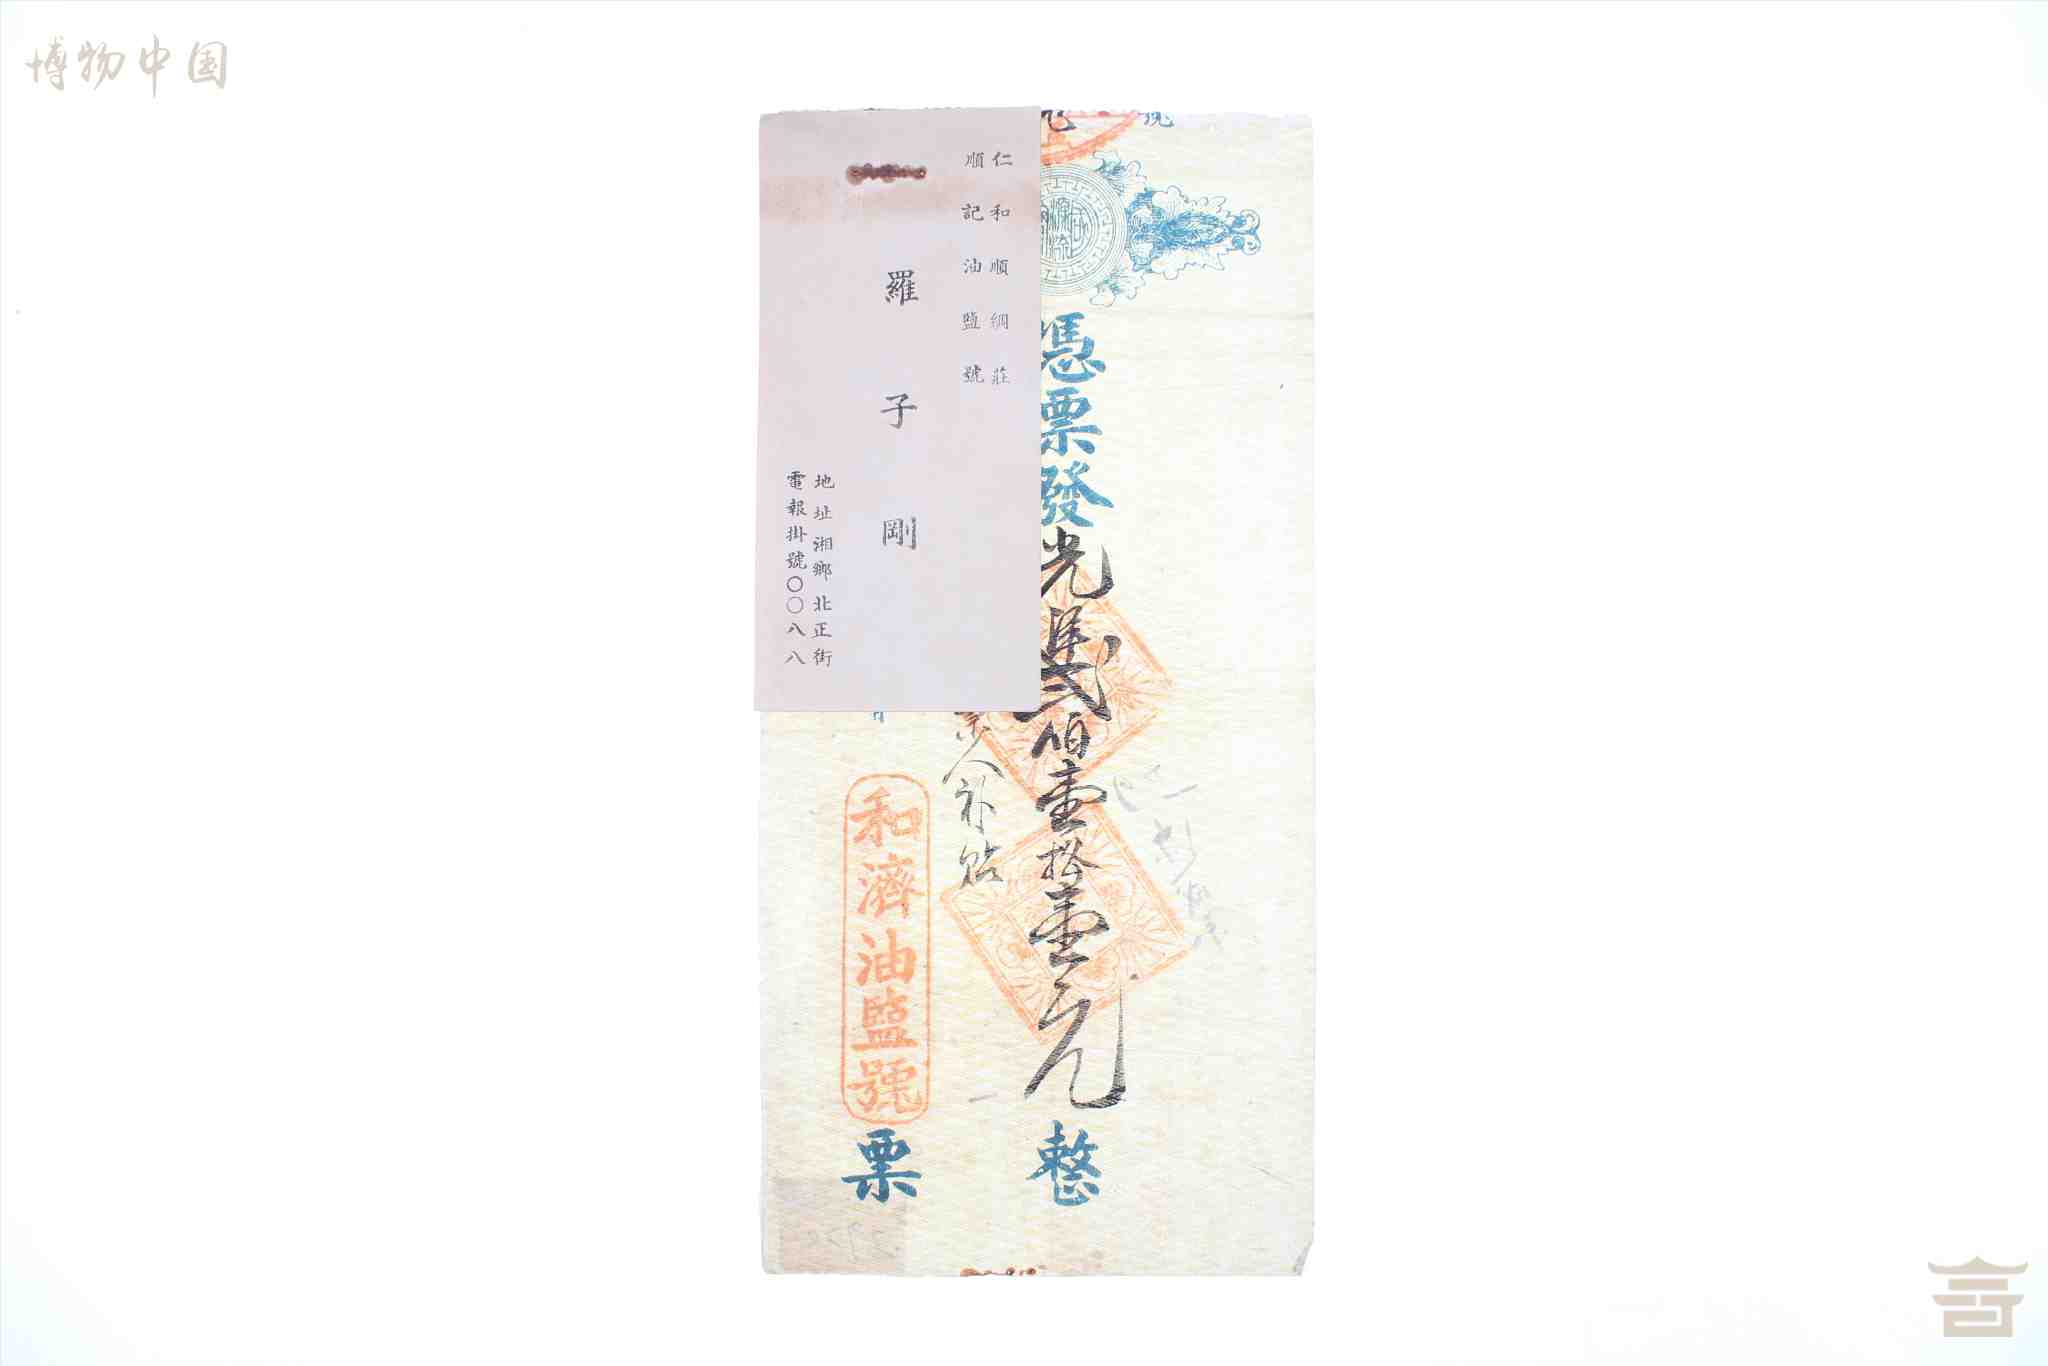 博物中国
號
憑票發光洋貳佰壹拾壹元整
補貼
和濟油鹽號
票
仁和順綢莊
順記油鹽號
羅子剛
地址湘鄉北正街
電報掛號〇〇八八